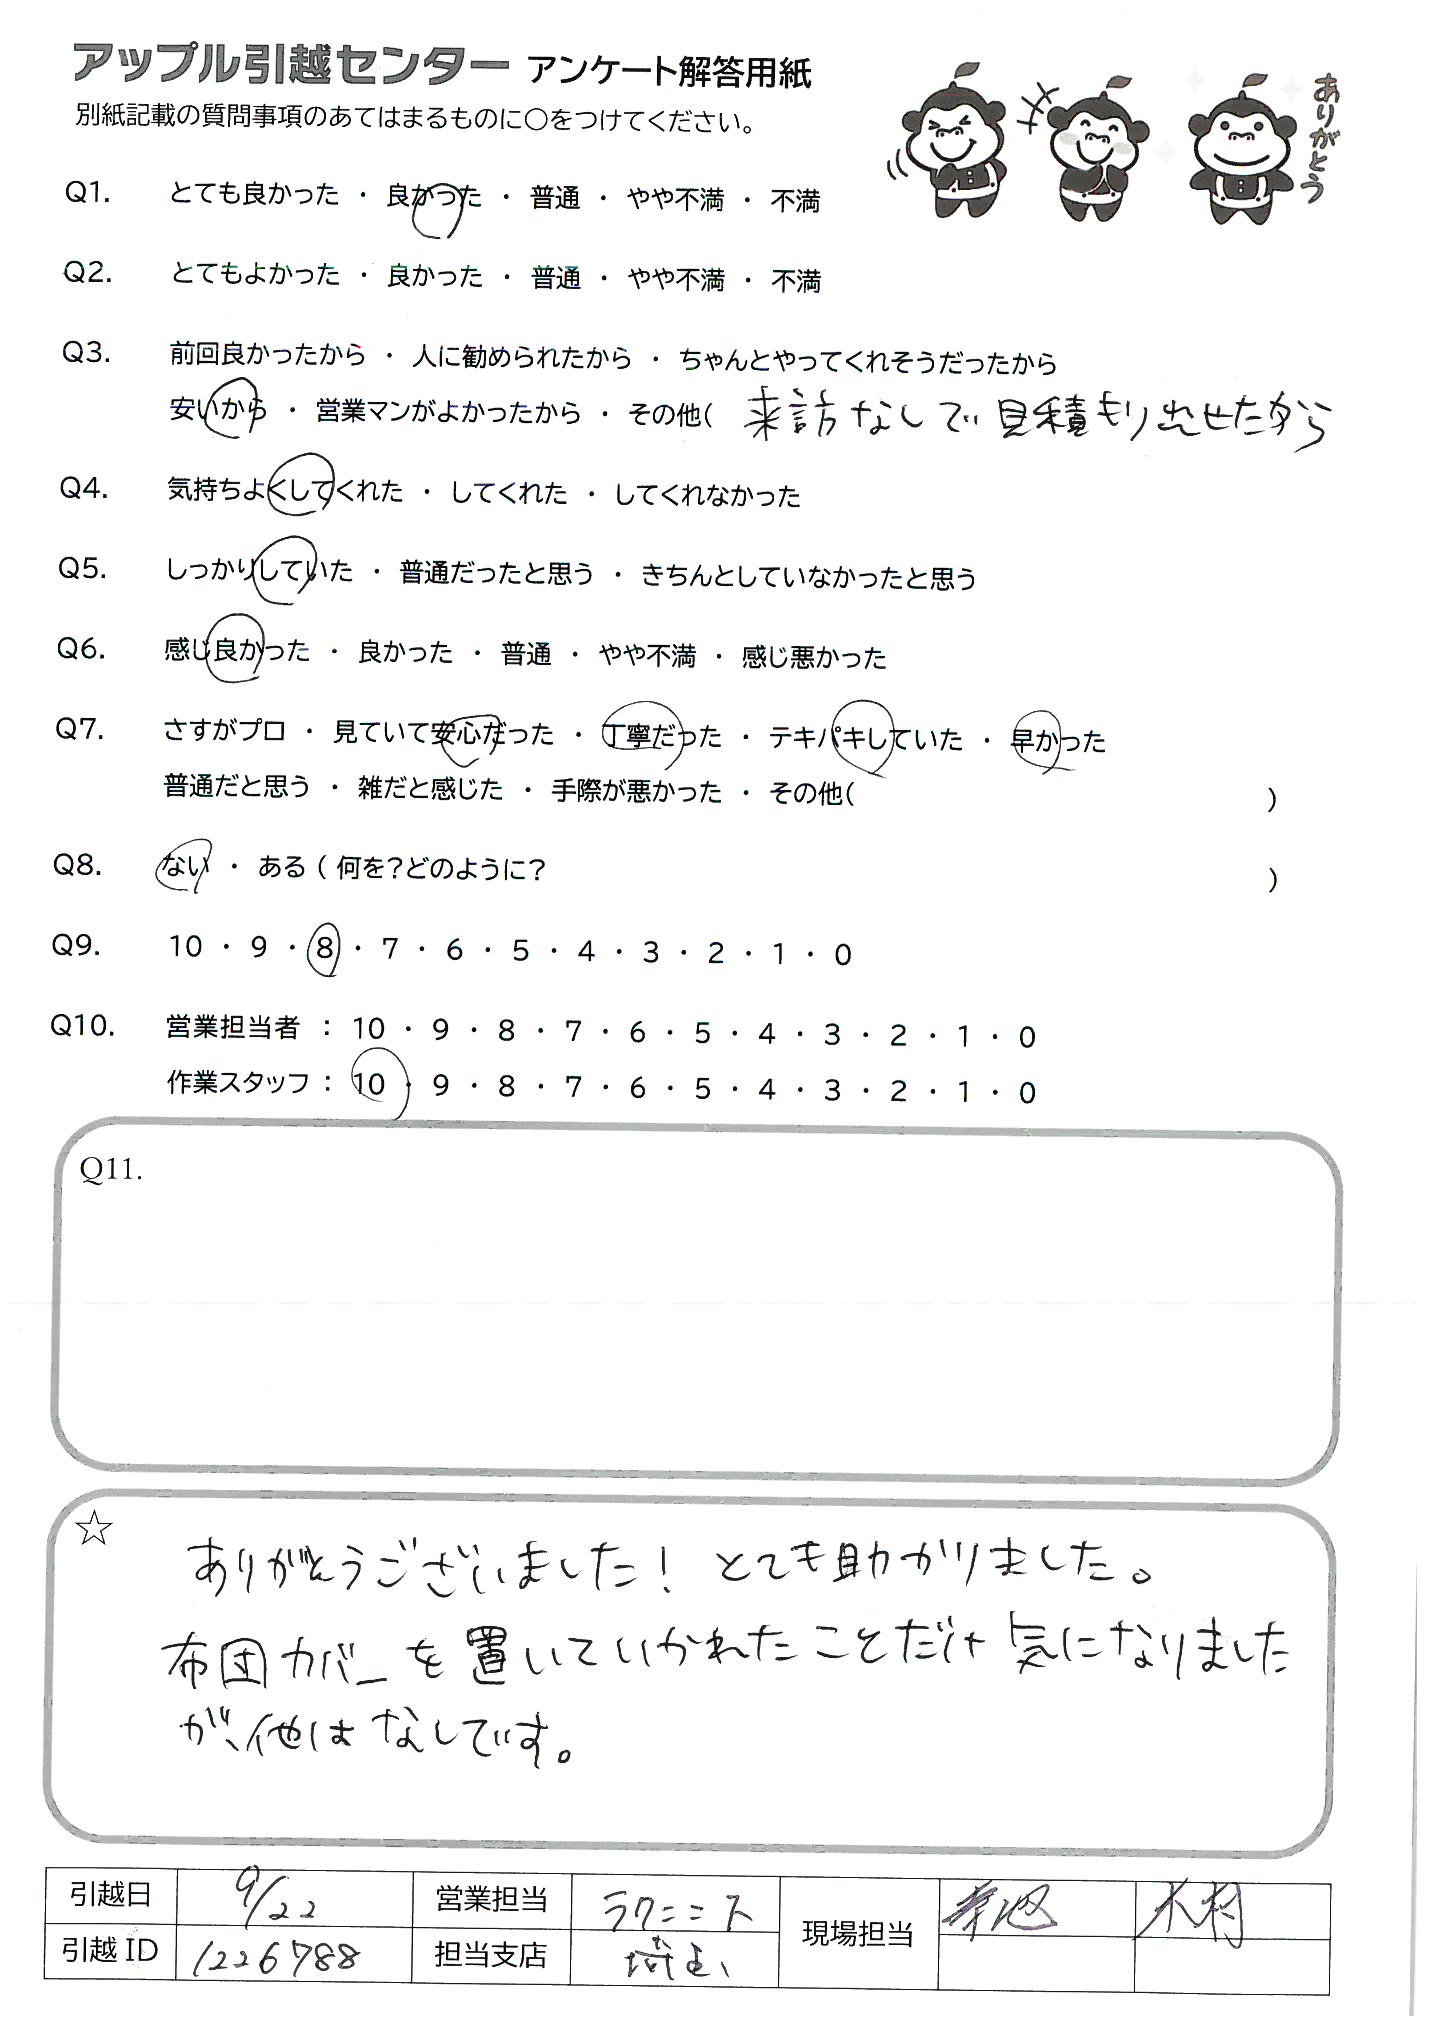 アップル引越センター アンケート解答用紙
別紙記載の質問事項のあてはまるものに○をつけてください。
ありがとう
Q1. とても良かった ・ 良かった ・ 普通 ・ やや不満 ・ 不満
Q2. とてもよかった ・ 良かった ・ 普通 ・ やや不満 ・ 不満
Q3. 前回良かったから ・ 人に勧められたから ・ ちゃんとやってくれそうだったから
安いから ・ 営業マンがよかったから ・ その他( 来訪なしで見積もり出せたから
Q4. 気持ちよくしてくれた ・ してくれた ・ してくれなかった
Q5. しっかりしていた ・ 普通だったと思う ・ きちんとしていなかったと思う
Q6. 感じ良かった ・ 良かった ・ 普通 ・ やや不満 ・ 感じ悪かった
Q7. さすがプロ ・ 見ていて安心だった ・ 丁寧だった ・ テキパキしていた ・ 早かった
普通だと思う ・ 雑だと感じた ・ 手際が悪かった ・ その他( )
Q8. ない ・ ある ( 何を?どのように? )
Q9. 10 ・ 9 ・ 8 ・ 7 ・ 6 ・ 5 ・ 4 ・ 3 ・ 2 ・ 1 ・ 0
Q10. 営業担当者 : 10 ・ 9 ・ 8 ・ 7 ・ 6 ・ 5 ・ 4 ・ 3 ・ 2 ・ 1 ・ 0
作業スタッフ : 10 ・ 9 ・ 8 ・ 7 ・ 6 ・ 5 ・ 4 ・ 3 ・ 2 ・ 1 ・ 0
Q11.
☆
ありがとうございました! とても助かりました。
布団カバーを置いていかれたことだけ気になりました
が、他はなしです。
引越日 9/22 営業担当 ラクニコス 現場担当 木村
引越ID 1226788 担当支店 埼玉